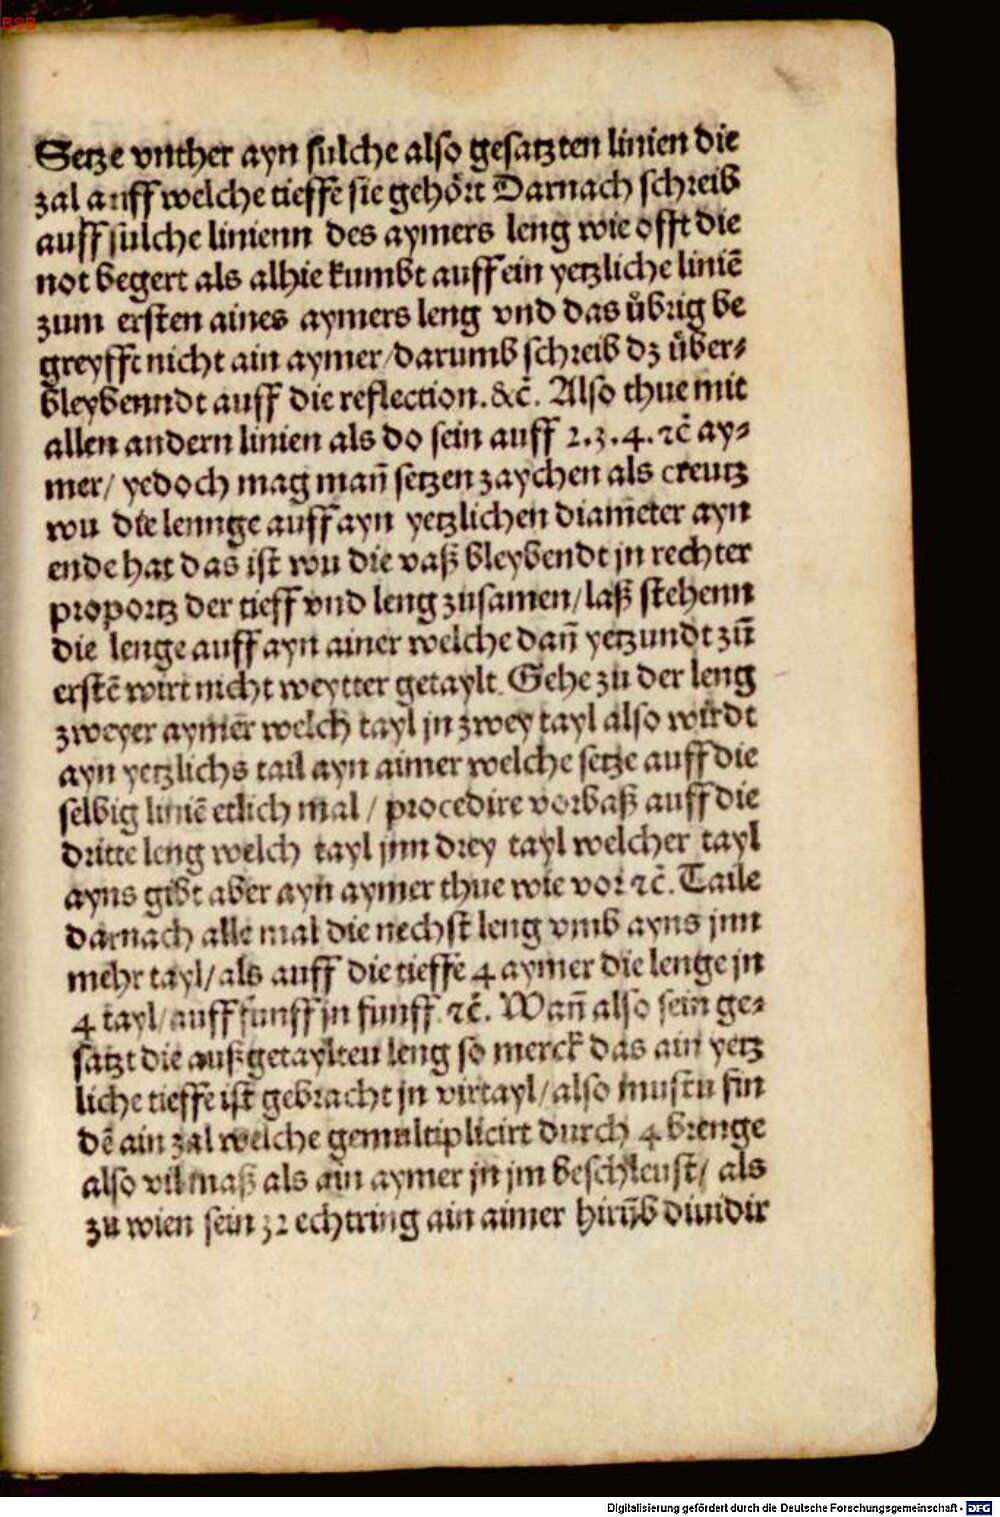 BSB
Setze vnther ayn sulche also gesatzten linien die
zal auff welche tieffe sie gehört Darnach schreib
auff sulche linienn des aymers leng wie offt die
not begert als alhie kumbt auff ein yetzliche liniē
zum ersten aines aymers leng vnd das übrig be
greyfft nicht ain aymer/darumb schreib dz über⸗
bleybenndt auff die reflection.&c̄. Also thue mit
allen andern linien als do sein auff 2.3.4.ꝛc̄ ay⸗
mer/ yedoch mag mañ setzen zaychen als creutz
wu die lennge auff ayn yetzlichen diam̄eter ayn
ende hat das ist wu die vaß bleybendt jn rechter
proportz der tieff vnd leng zusamen/laß stehenn
die lenge auff ayn ainer welche dañ yetzundt zū
erstē wirt nicht weytter getaylt. Gehe zu der leng
zweyer aymer welch tayl jn zwey tayl also wirdt
ayn yetzlichs tail ayn aimer welche setze auff die
selbig liniē etlich mal / procedire vorbaß auff die
dritte leng welch tayl jnn drey tayl welcher tayl
ayns gibt aber ayn aymer thue wie vor ꝛc̄. Taile
darnach alle mal die nechst leng vmb ayns jnn
mehr tayl/als auff die tieffe 4 aymer die lenge jn
4 tayl/auff funff jn funff ꝛc̄. Wañ also sein ge⸗
satzt die außgetaylten leng so merck das ain yetz
liche tieffe ist gebracht jn virtayl/also mustu fin
dē ain zal welche gemultiplicirt durch 4 brenge
also vil maß als ain aymer jn jm beschleust/ als
zu wien sein 32 echtring ain aimer hirūb diuidir
Digitalisierung gefördert durch die Deutsche Forschungsgemeinschaft - DFG